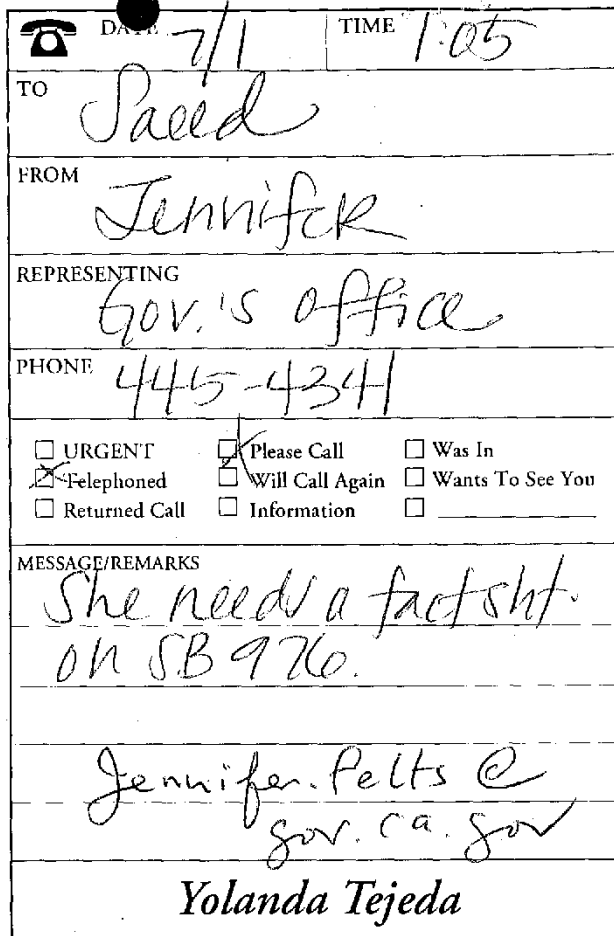 DATE 7/1 TIME 1:05
TO Saeed
FROM Jennifer
REPRESENTING Gov.'s office
PHONE 445-4341
☐ URGENT ☒ Please Call ☐ Was In
☒ Telephoned ☐ Will Call Again ☐ Wants To See You
☐ Returned Call ☐ Information ☐
MESSAGE/REMARKS
She needs a fact sht.
on SB 976.
Jennifer.Pelts @
gov.ca.gov
Yolanda Tejeda